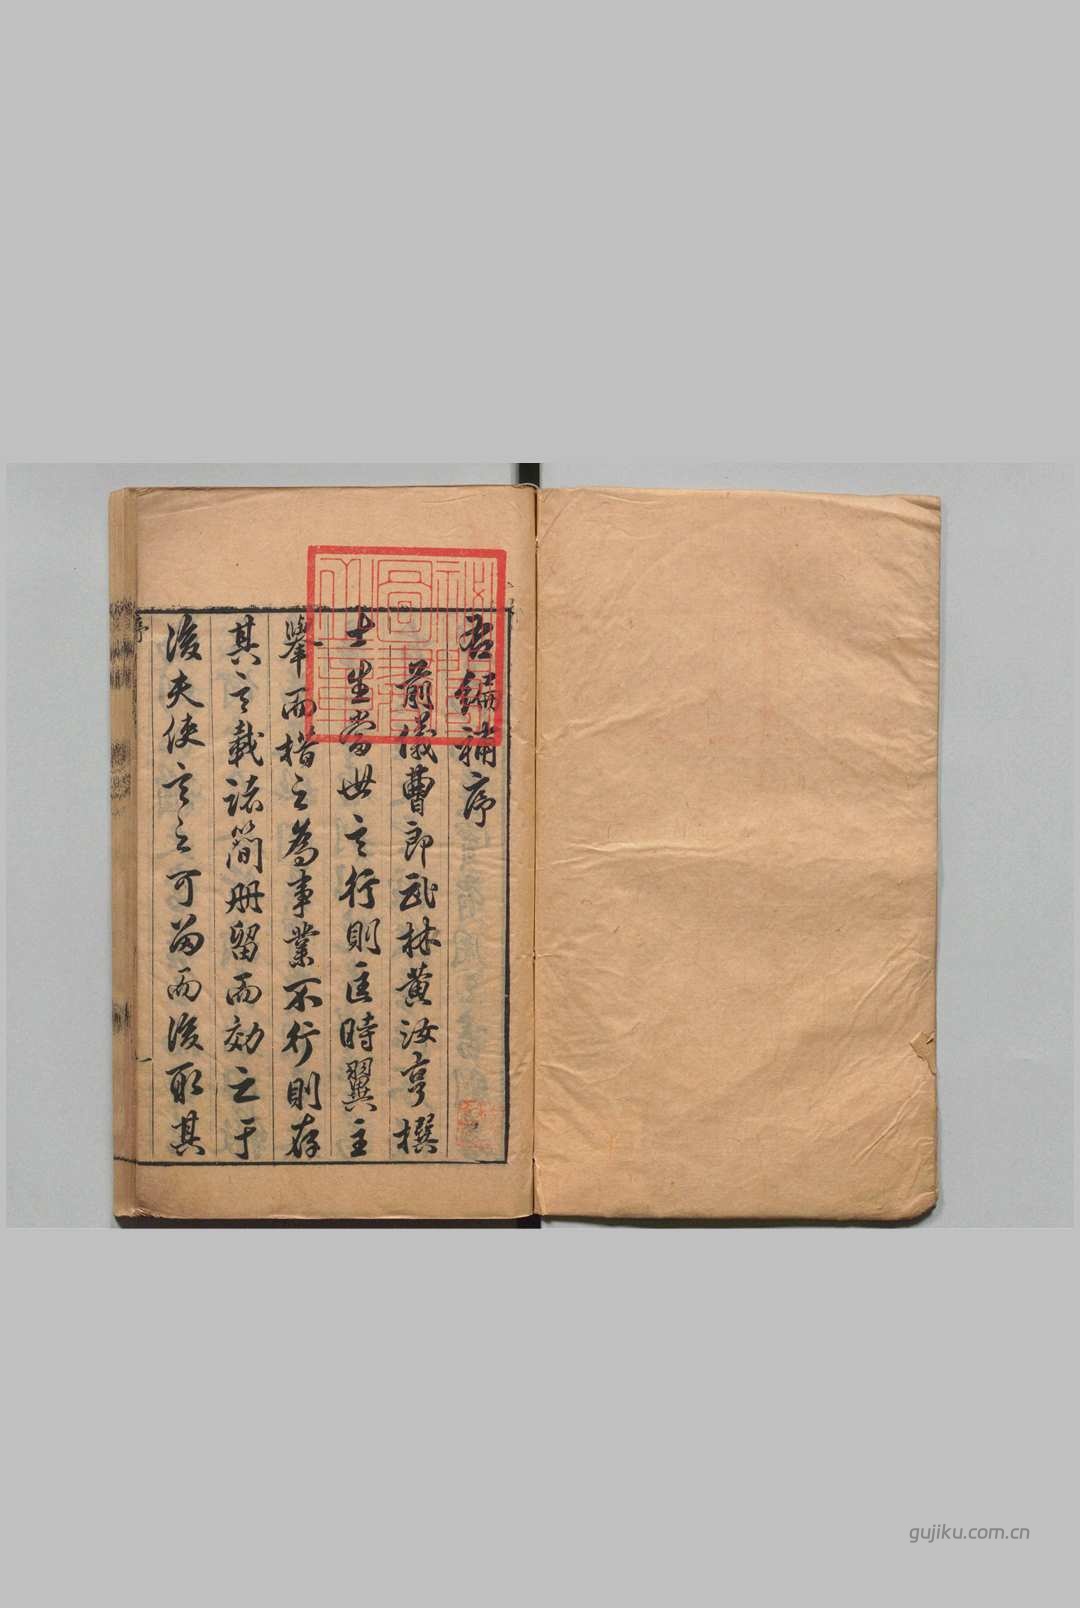 右編補序
前儀曹郎武林黃汝亨撰
士生當世言行則匡時翼主
舉而措之為事業不行則存
其言載諸簡冊留而効之于
後夫使言之可留而後取其
序
一
gujiku.com.cn